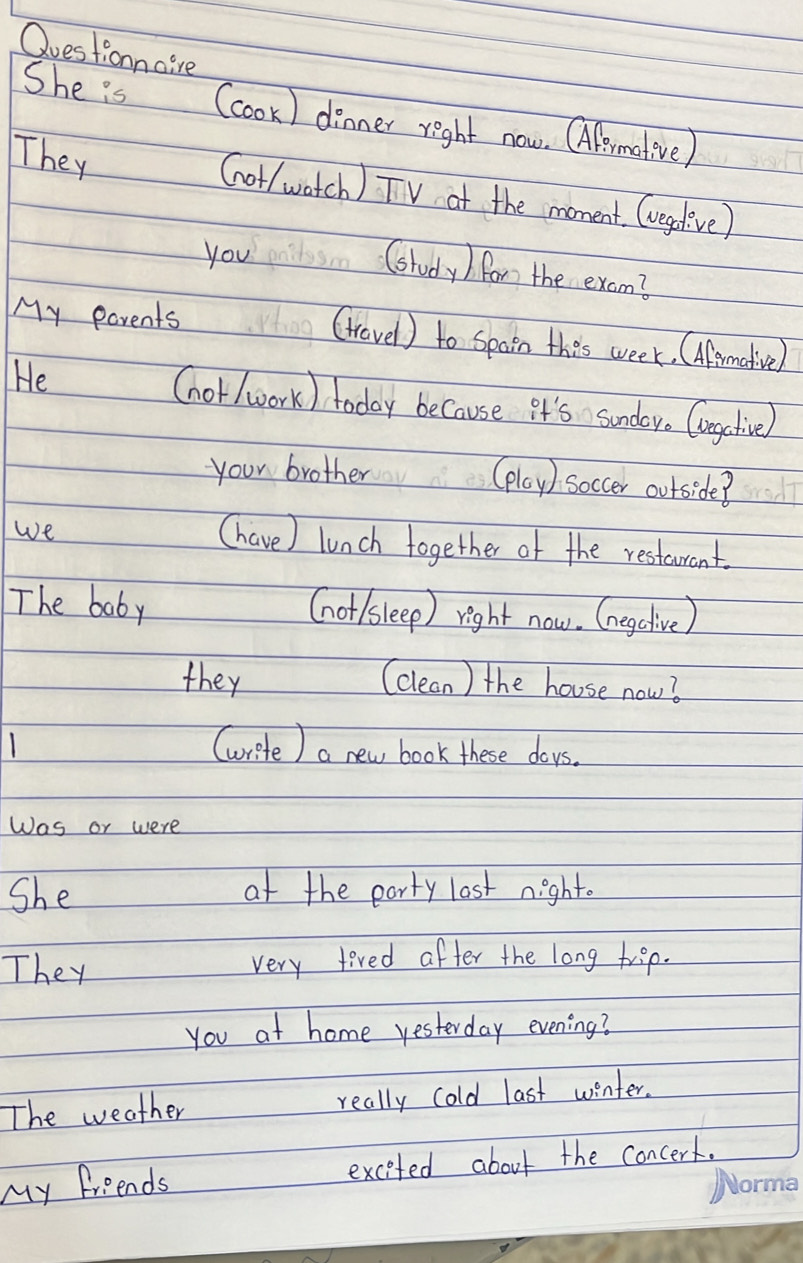 Questionnaire
She is (cook) dinner right now. (Afirmative)
They (not/watch) TV at the moment. (negative)
you (study) for the exam?
My parents (travel) to Spain this week. (Afirmative)
He (not/work) today because it's sunday. (negative)
your brother (play) soccer outside?
we (have) lunch together at the restaurant.
The baby (not/sleep) right now. (negative)
they (clean) the house now?
I (write) a new book these days.
Was or were
She at the party last night.
They very tired after the long trip.
you at home yesterday evening?
The weather really cold last winter.
My friends excited about the concert.
Norma